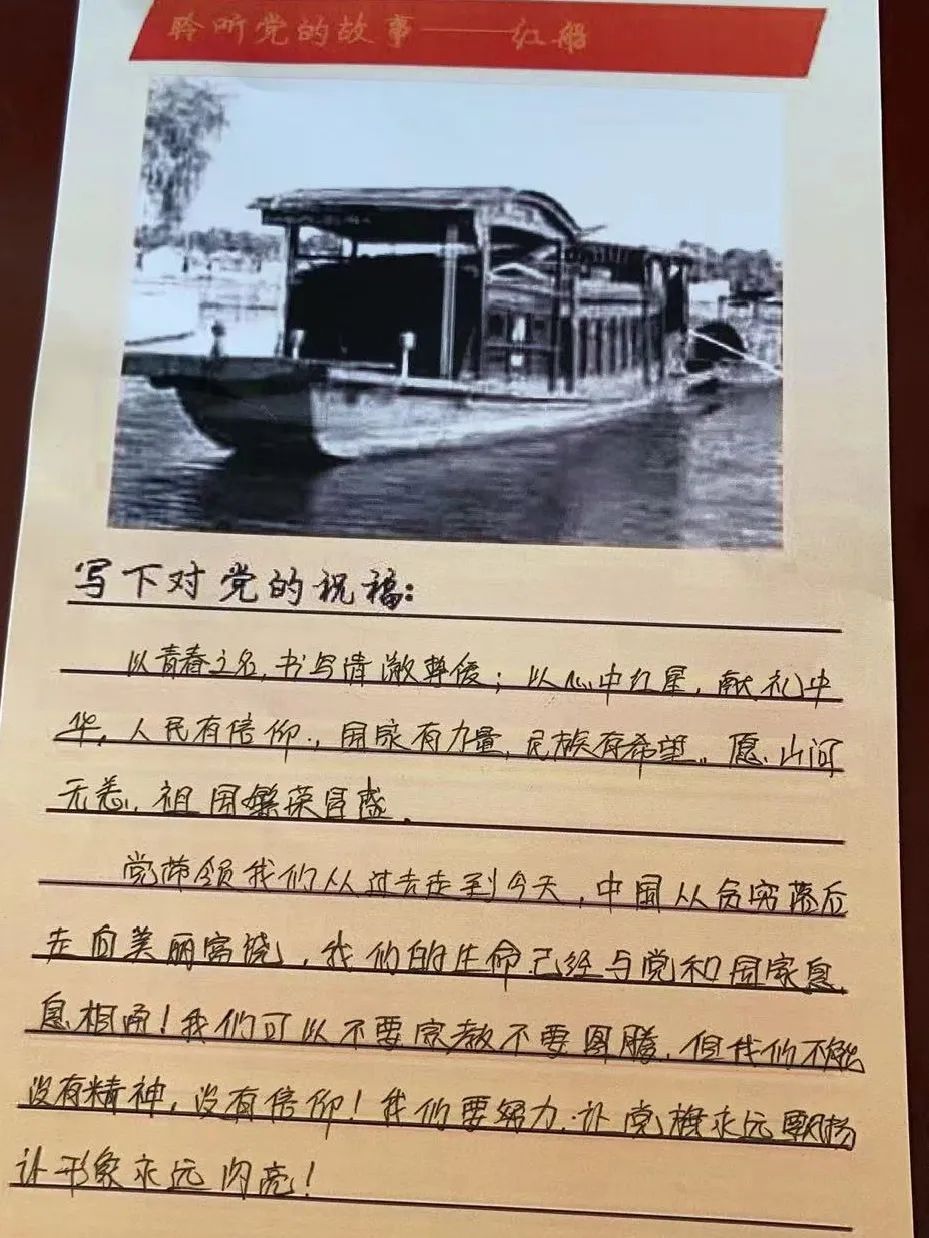 聆听党的故事——红船
写下对党的祝福:
以青春之名,书写清澈挚爱;以心中红星,献礼中
华,人民有信仰.,国家有力量,民族有希望。愿,山河
无恙,祖国繁荣昌盛.
党带领我们从过去走到今天,中国从贫穷落后
走向美丽富饶,我们的生命已经与党和国家息
息相通!我们可以不要宗教不要图腾,但我们不能
没有精神,没有信仰!我们要努力.让党旗永远飘扬
让形象永远闪亮!